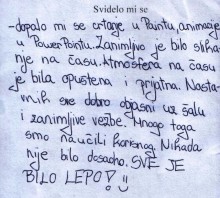 Svidelo mi se
-dopalo mi se crtanje u Paintu, animacije
u PowerPointu. Zanimljivo je bilo slika-
nje na času. Atmosfera na času
je bila opuštena i prijatna. Nasta-
vnik sve dobro objasni uz šalu
i zanimljive vežbe. Mnogo toga
smo naučili korisnog. Nikada
nije bilo dosadno. SVE JE
BILO LEPO!!